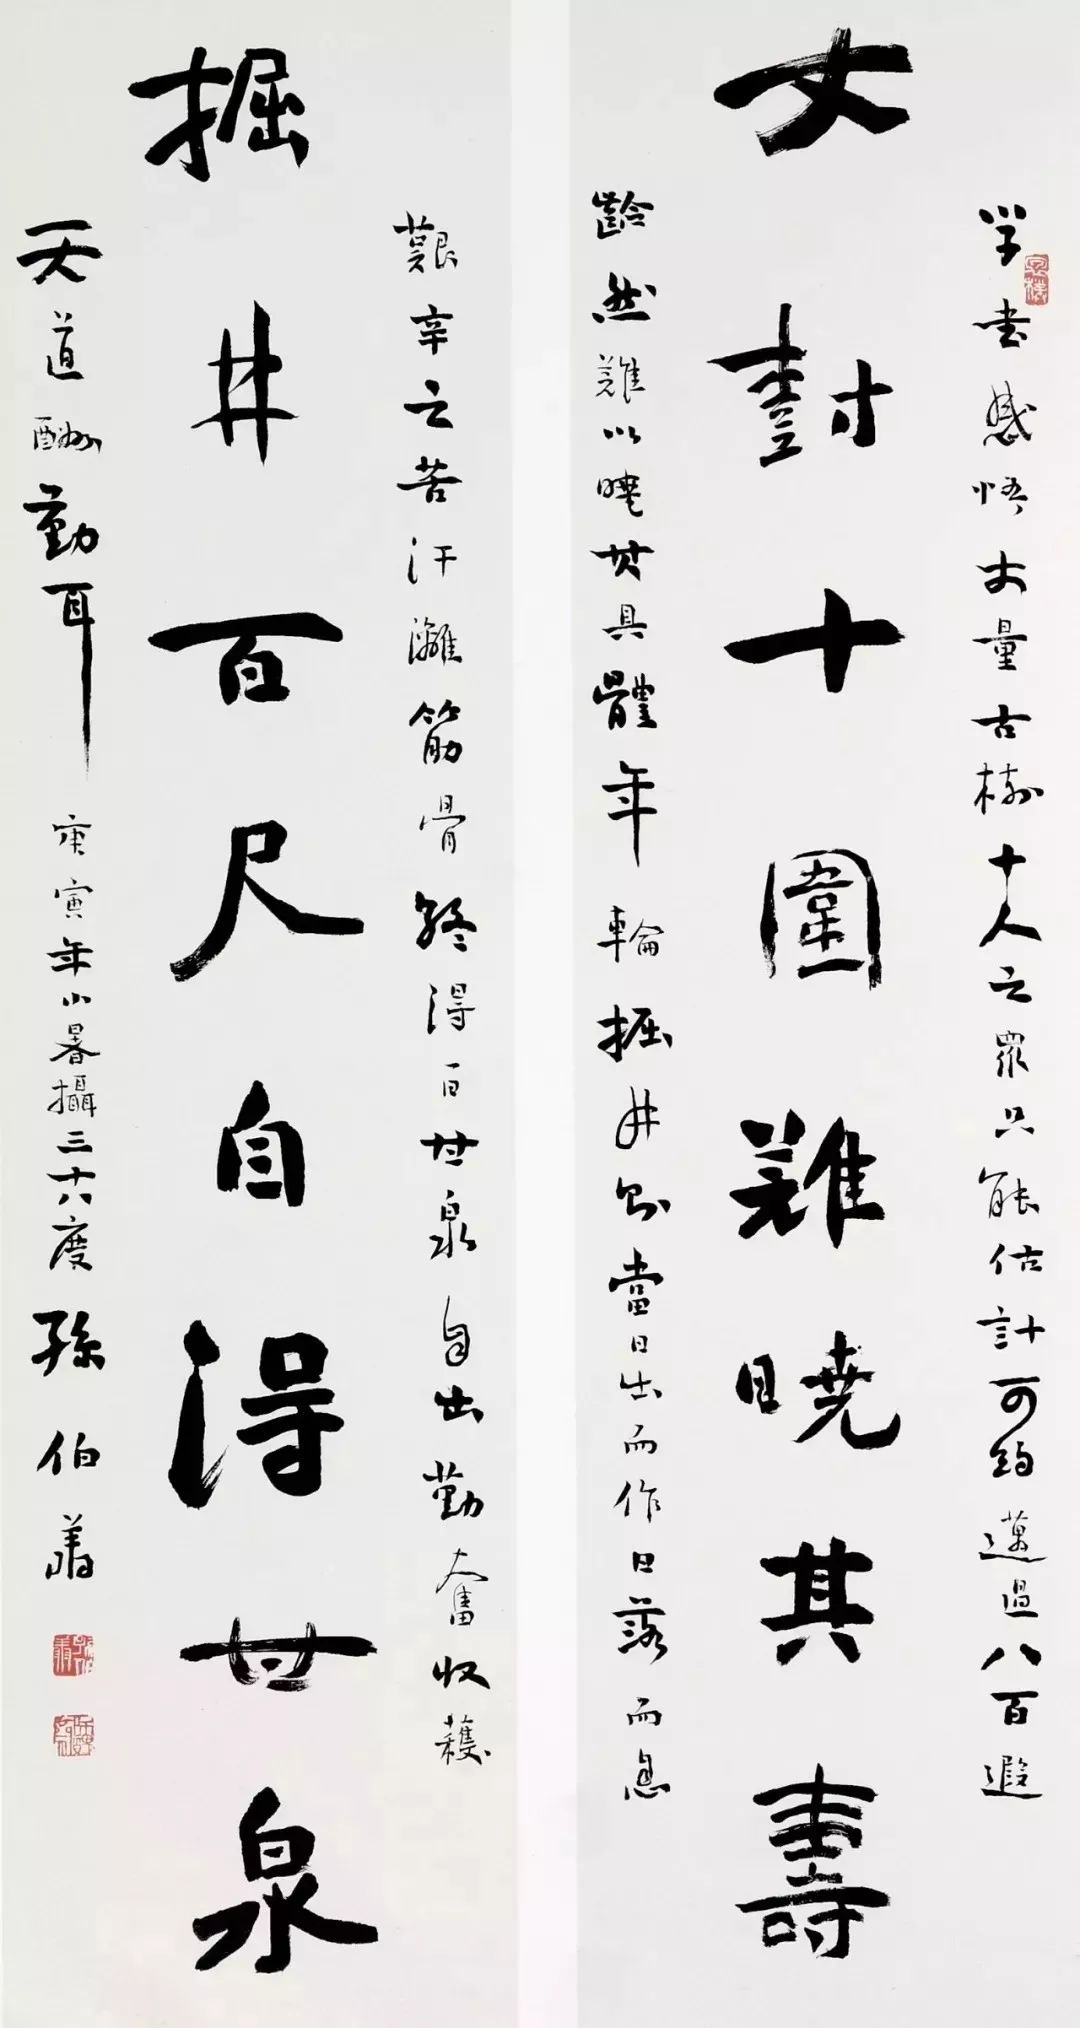 学書感悟丈量古樹十人之眾只能估計可約邁過八百遐
丈尌十圍難曉其壽
齡然難以曉其具體年輪掘井則當日出而作日落而息
艱辛之苦汗灕筋骨終得百世泉自出勤奮收穫
掘井百尺自得世泉
天道酬勤耳 庚寅年小暑攝三十六度 孫伯翔